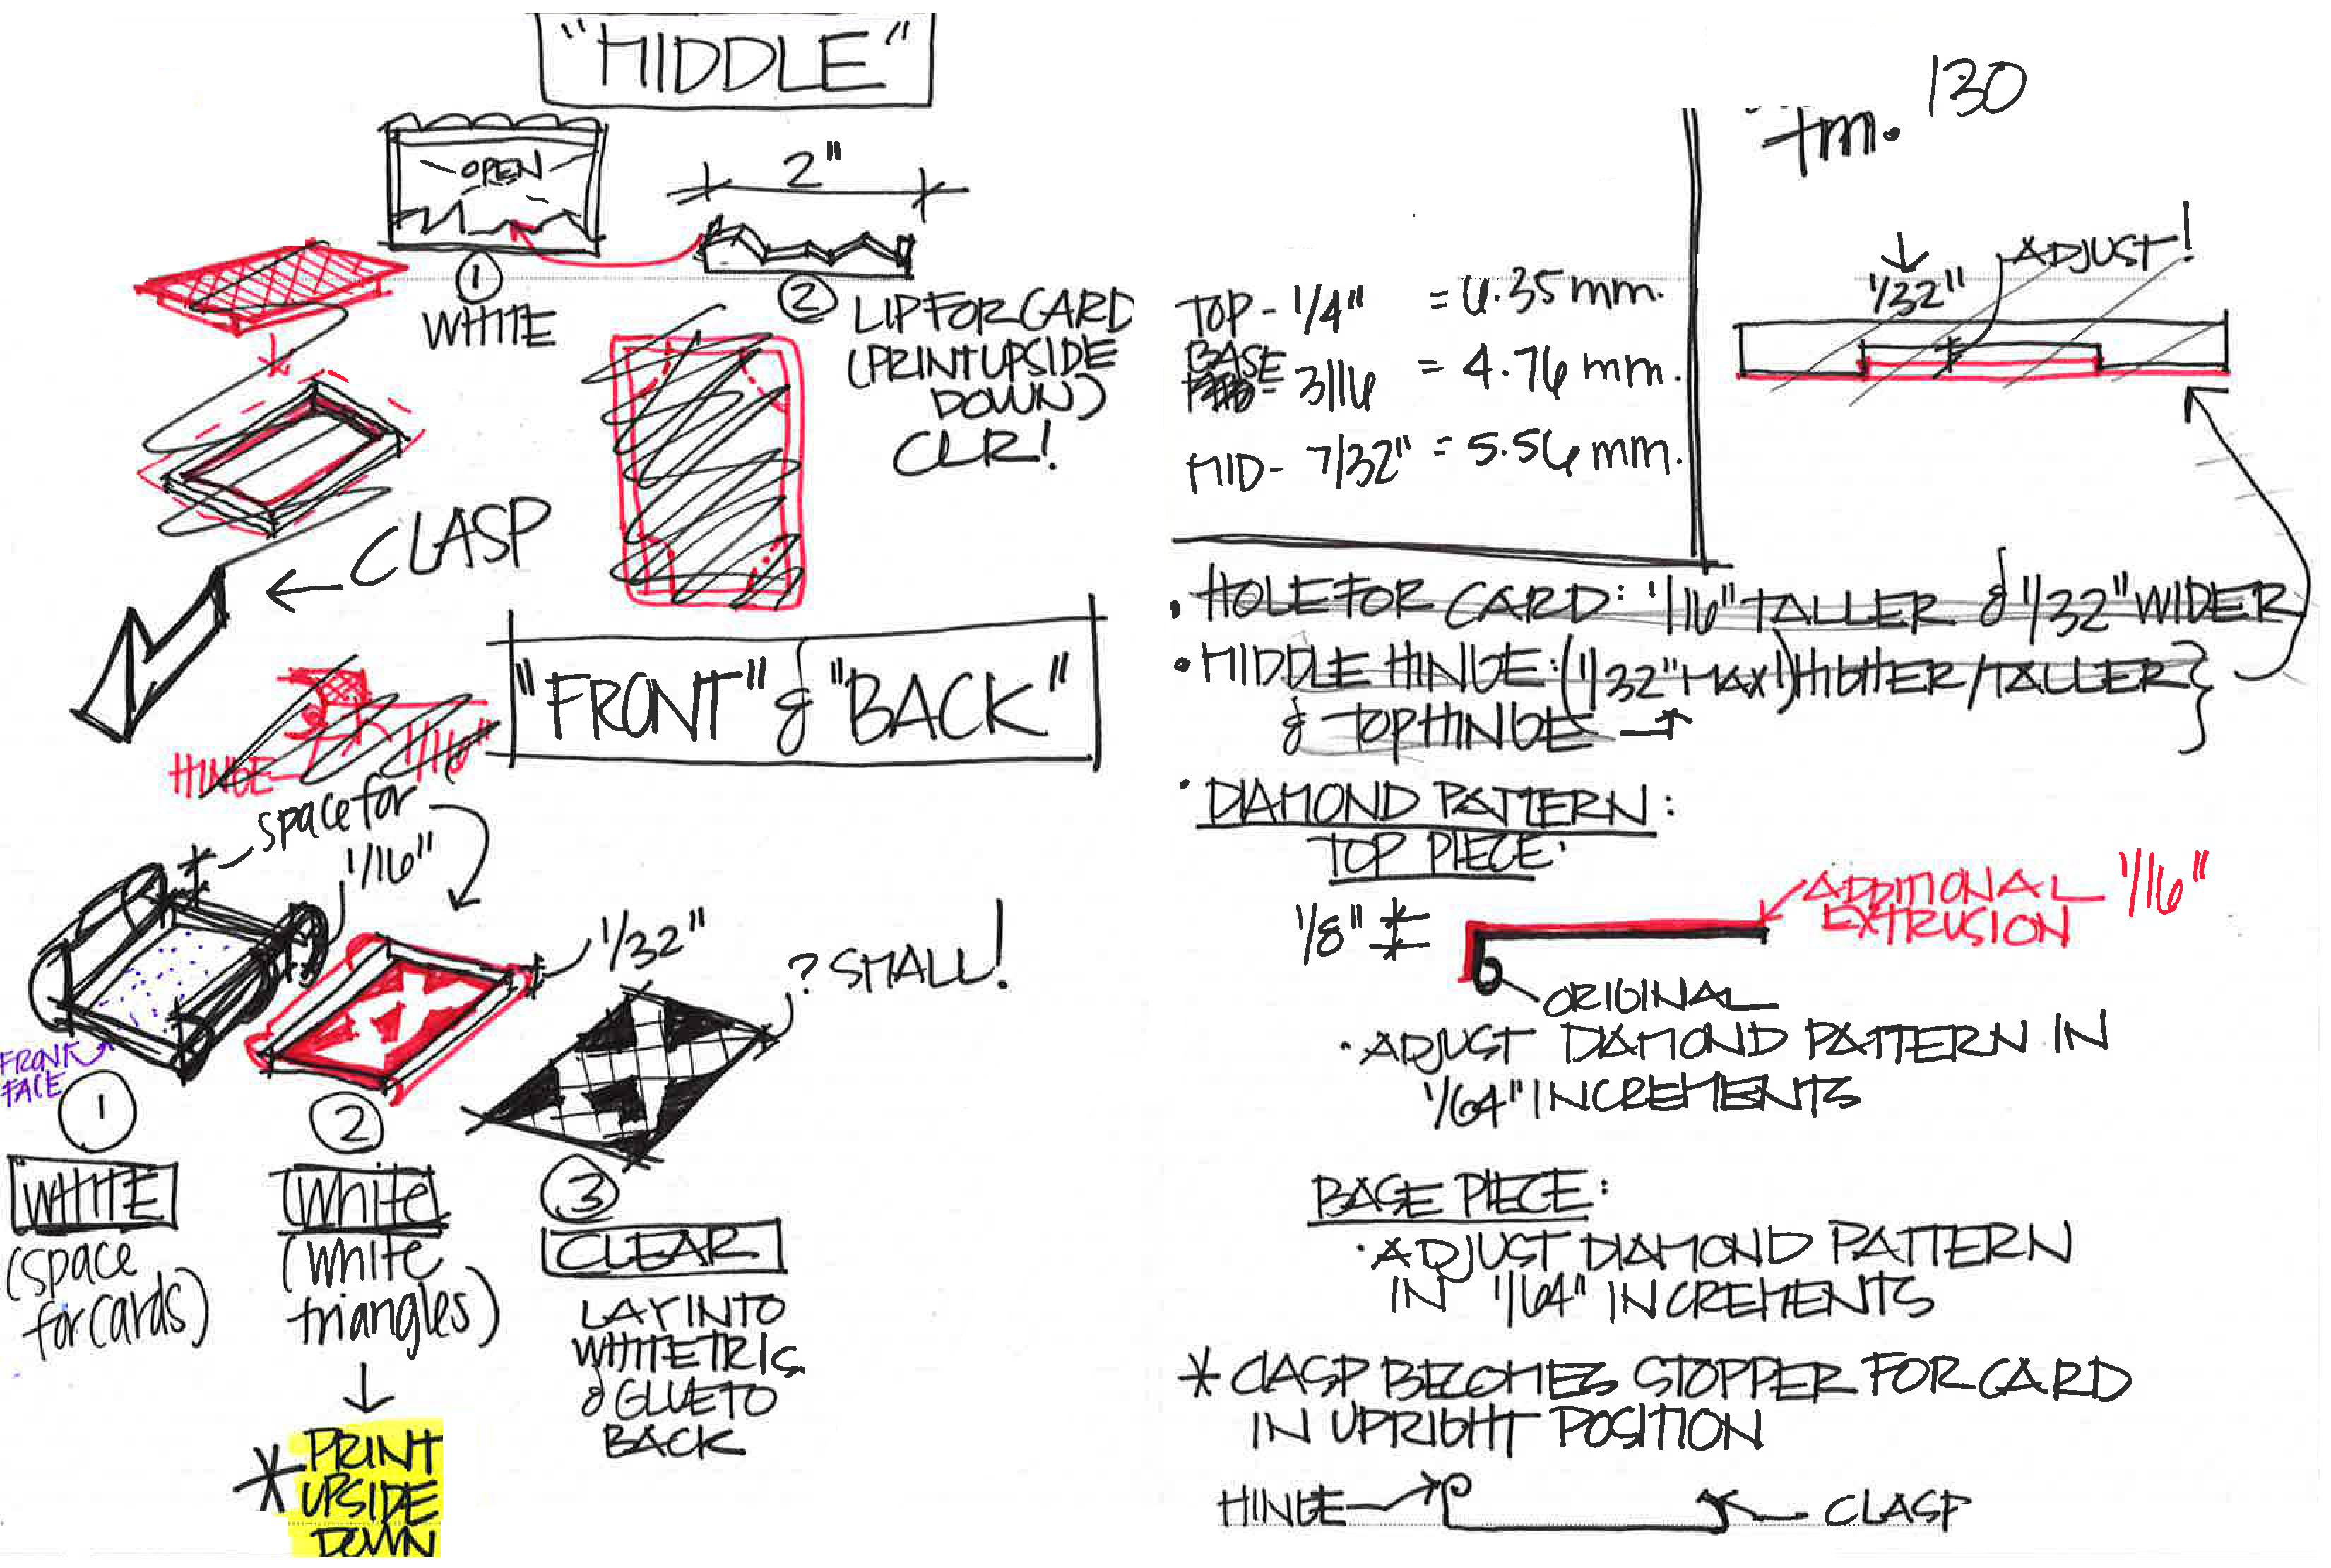 "MIDDLE"
OPEN
2"
①
WHITE
② LIP FOR CARD
(PRINT UPSIDE
DOWN)
CLR!
← CLASP
"FRONT" & "BACK"
HINGE
1/16"
space for
1/16"
1/32"
? SMALL!
FRONT
FACE
①
WHITE
(space
for cards)
②
White
(white
triangles)
↓
* PRINT
UPSIDE
DOWN
③
CLEAR
LAY INTO
WHITE TRIS.
& GLUE TO
BACK
130
TOP - 1/4" = 6.35 mm.
BASE
3/16 = 4.76 mm.
MID - 7/32" = 5.56 mm.
ADJUST!
↓
1/32"
• HOLE FOR CARD: 1/16" TALLER & 1/32" WIDER
• MIDDLE HINGE: (1/32" MAX!) HIGHER/TALLER
& TOP HINGE →
• DIAMOND PATTERN:
TOP PIECE:
1/8"
ADDITIONAL 1/16"
EXTRUSION
ORIGINAL
• ADJUST DIAMOND PATTERN IN
1/64" INCREMENTS
BASE PIECE:
• ADJUST DIAMOND PATTERN
IN 1/64" INCREMENTS
* CLASP BECOMES STOPPER FOR CARD
IN UPRIGHT POSITION
HINGE →
← CLASP